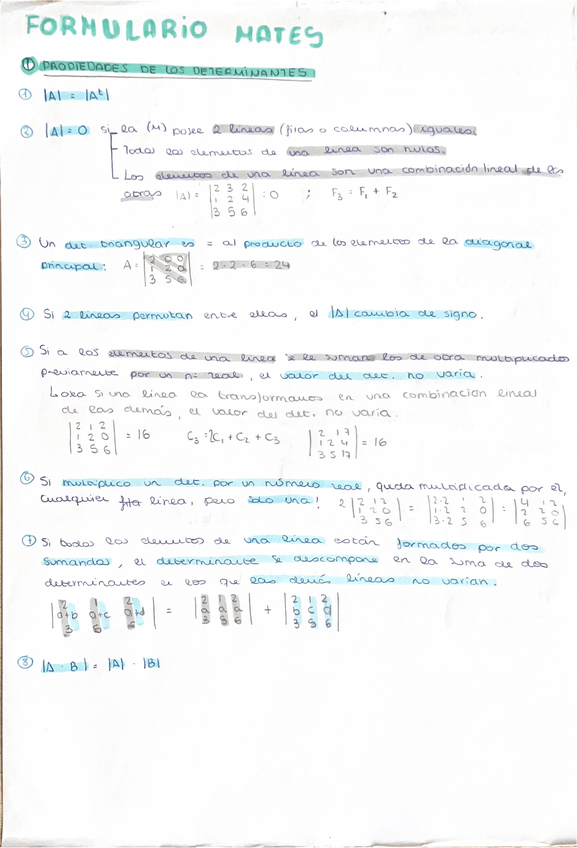 FORMULARIO MATES
① PROPIEDADES DE LOS DETERMINANTES
① |A| = |Aᵗ|
② |A| = 0 si la (M) posee 2 lineas (filas o columnas) iguales.
Todos los elementos de una linea son nulos.
Los elementos de una línea son una combinación lineal de las
otras |A| = |2 3 2| : 0 ; F₃ = F₁ + F₂
|1 2 4|
|3 5 6|
③ Un det. triangular es = al producto de los elementos de la diagonal
principal: A = |2 0 0| = 2·2·6 = 24
|1 2 0|
|3 5 6|
④ Si 2 lineas permutan entre ellas, el |A| cambia de signo.
⑤ Si a los elementos de una linea se le suman los de otra multiplicados
previamente por un nº real, el valor del det. no varia.
↳ osea si una linea la transformamos en una combinación lineal
de las demás, el valor del det. no varia.
|2 1 2| = 16 C₃ = 2C₁ + C₂ + C₃ |2 1 7| = 16
|1 2 0| |1 2 4|
|3 5 6| |3 5 17|
⑥ Si multiplico un det. por un número real, queda multiplicada por el,
cualquier linea, pero solo una! 2 |2 1 2| = |2·2 1 2| = |4 1 2|
|1 2 0| |1·2 2 0| |2 2 0|
|3 5 6| |3·2 5 6| |6 5 6|
⑦ Si todos los elementos de una línea están formados por dos
sumandos, el determinante se descompone en la suma de dos
determinantes en los que las demás líneas no varian.
|2 1 2| = |2 1 2| + |2 1 2|
|a+b a+c a+d| |a a a| |b c d|
|3 5 6| |3 5 6| |3 5 6|
⑧ |A · B| = |A| · |B|